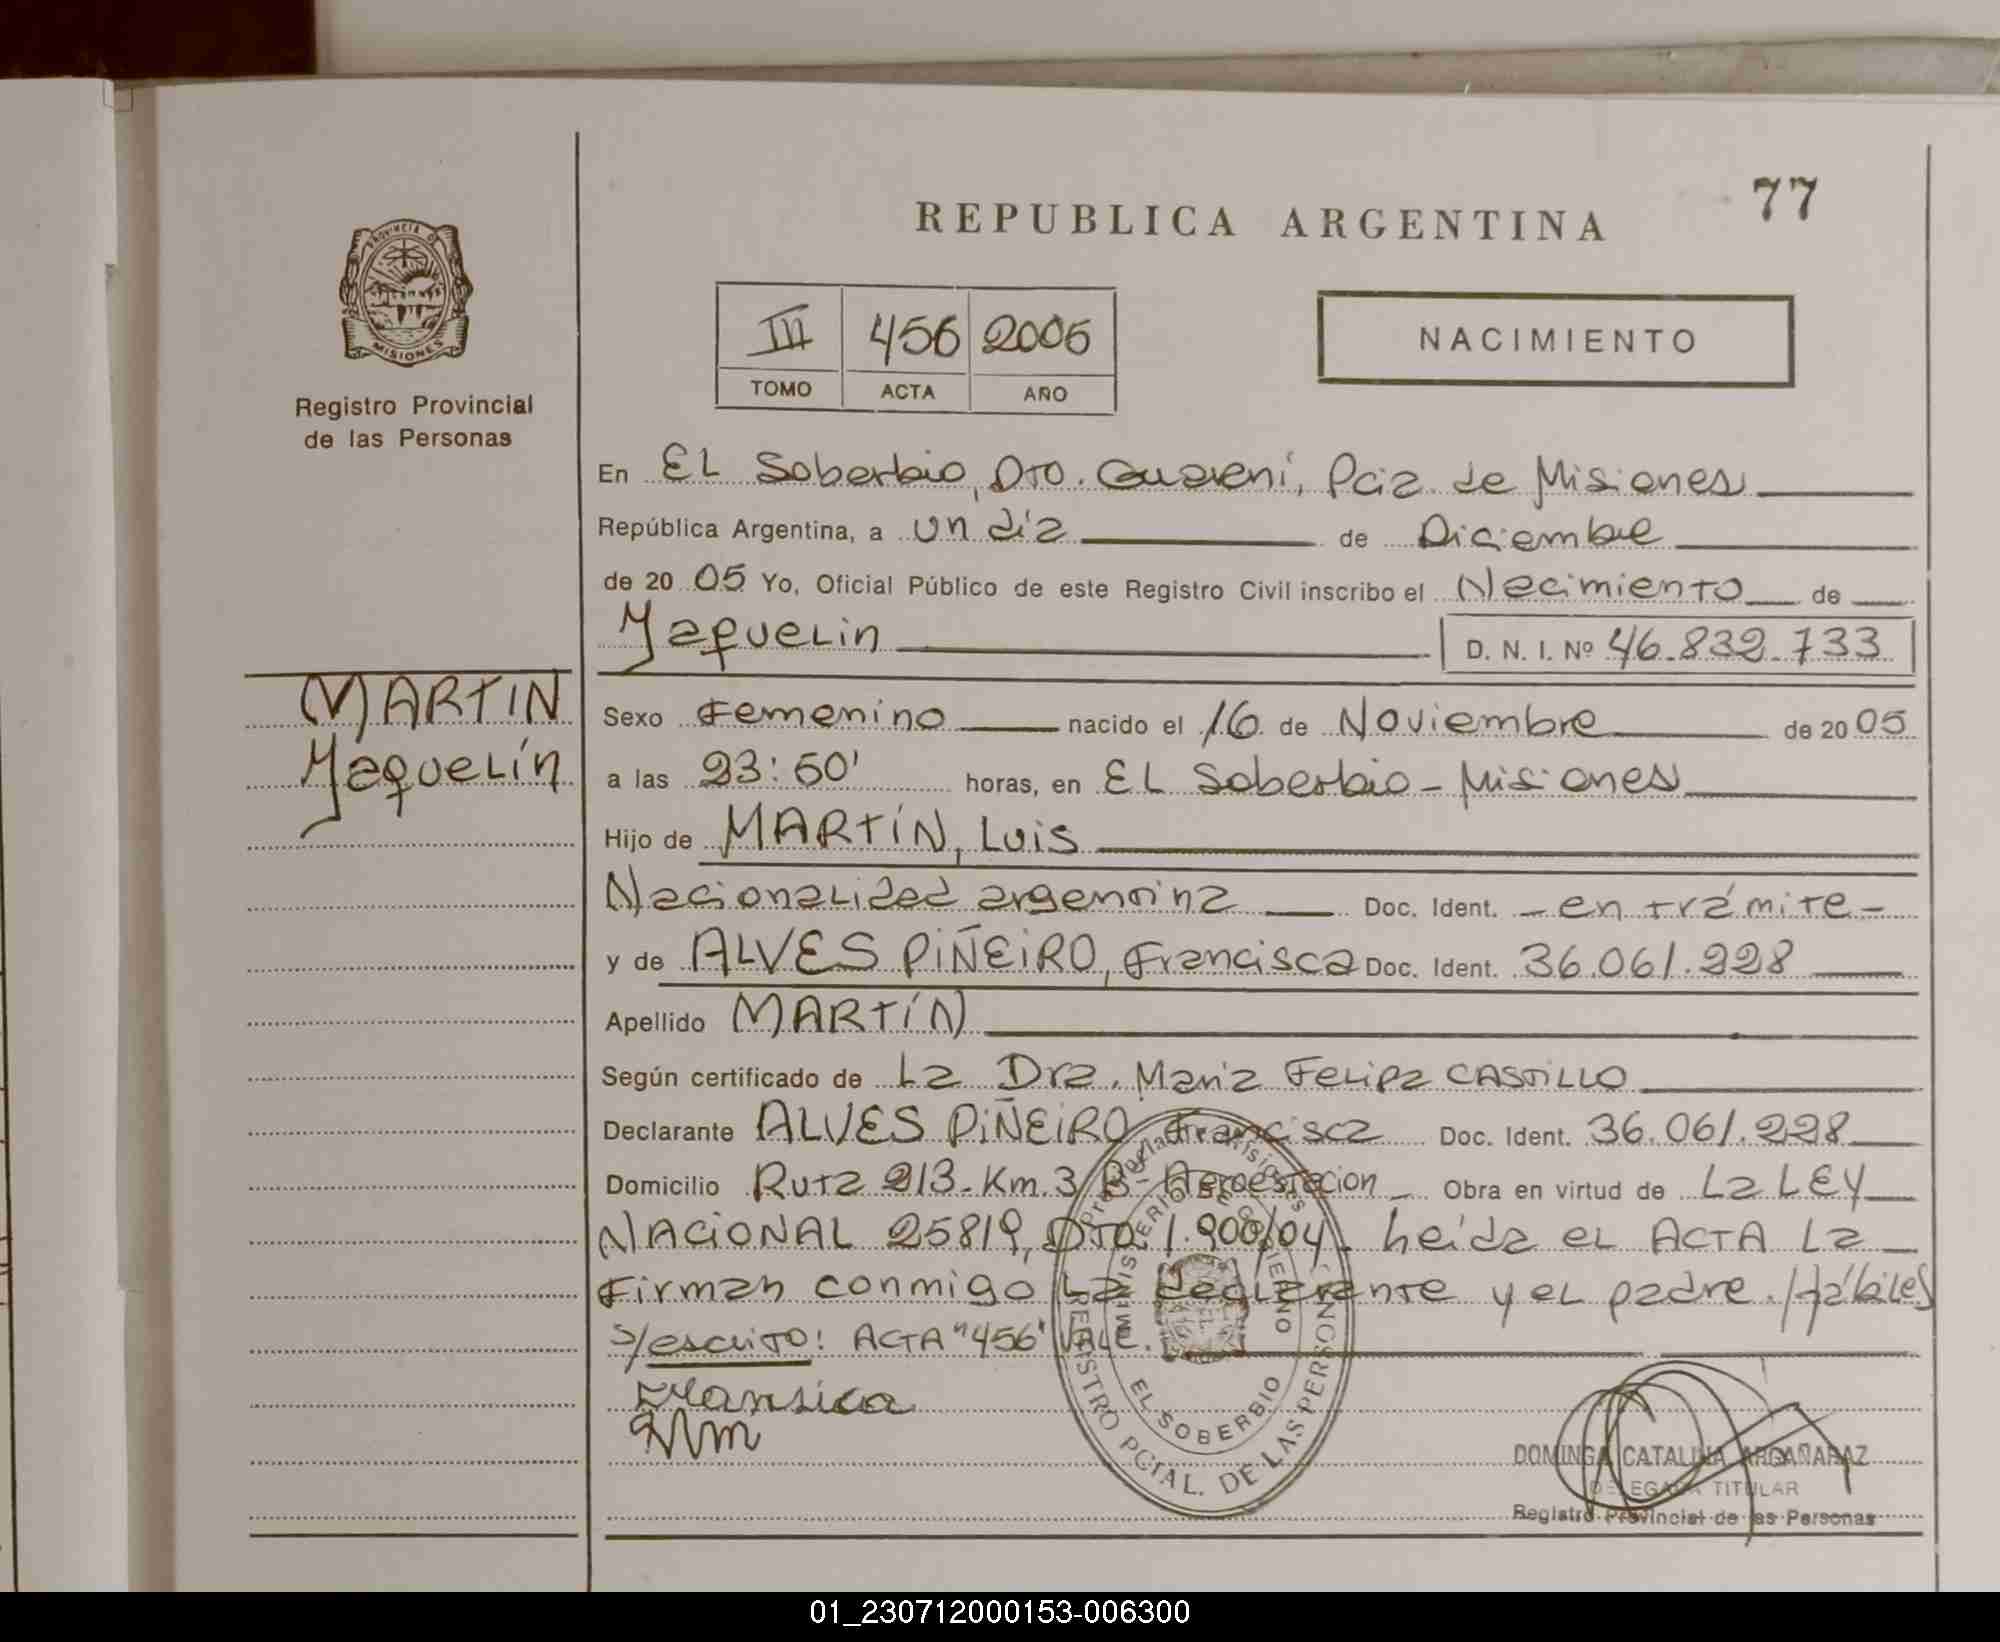 REPUBLICA ARGENTINA
77
PROVINCIA DE
MISIONES
Registro Provincial
de las Personas
III 456 2005
TOMO ACTA AÑO
NACIMIENTO
En EL Soberbio, Dto. Guaraní, Pcia de Misiones
República Argentina, a un día de Diciembre
de 20 05 Yo, Oficial Público de este Registro Civil inscribo el Nacimiento de
Yaquelin D. N. I. Nº 46.832.733
MARTIN
Yaquelín
Sexo Femenino nacido el 16 de Noviembre de 20 05
a las 23:50' horas, en EL Soberbio - Misiones
Hijo de MARTÍN, Luis
Nacionalidad argentina Doc. Ident. - en trámite -
y de ALVES PIÑEIRO, Francisca Doc. Ident. 36.061.228
Apellido MARTÍN
Según certificado de La Dra. María Felipa CASTILLO
Declarante ALVES PIÑEIRO Francisca Doc. Ident. 36.061.228
Domicilio Ruta 213 - Km. 3 B- Aeroestacion - Obra en virtud de La LEY
NACIONAL 25819, DTO. 1.900/04. Leída el ACTA La
Firman conmigo La declarante y el padre. Hábiles
S/escrito: ACTA "456" VALE.
Fransica
DOMINGA CATALINA ARGAÑARAZ
DELEGADA TITULAR
Registro Provincial de las Personas
MINISTERIO DE GOBIERNO
REGISTRO PCIAL. DE LAS PERSONAS
EL SOBERBIO
01_230712000153-006300